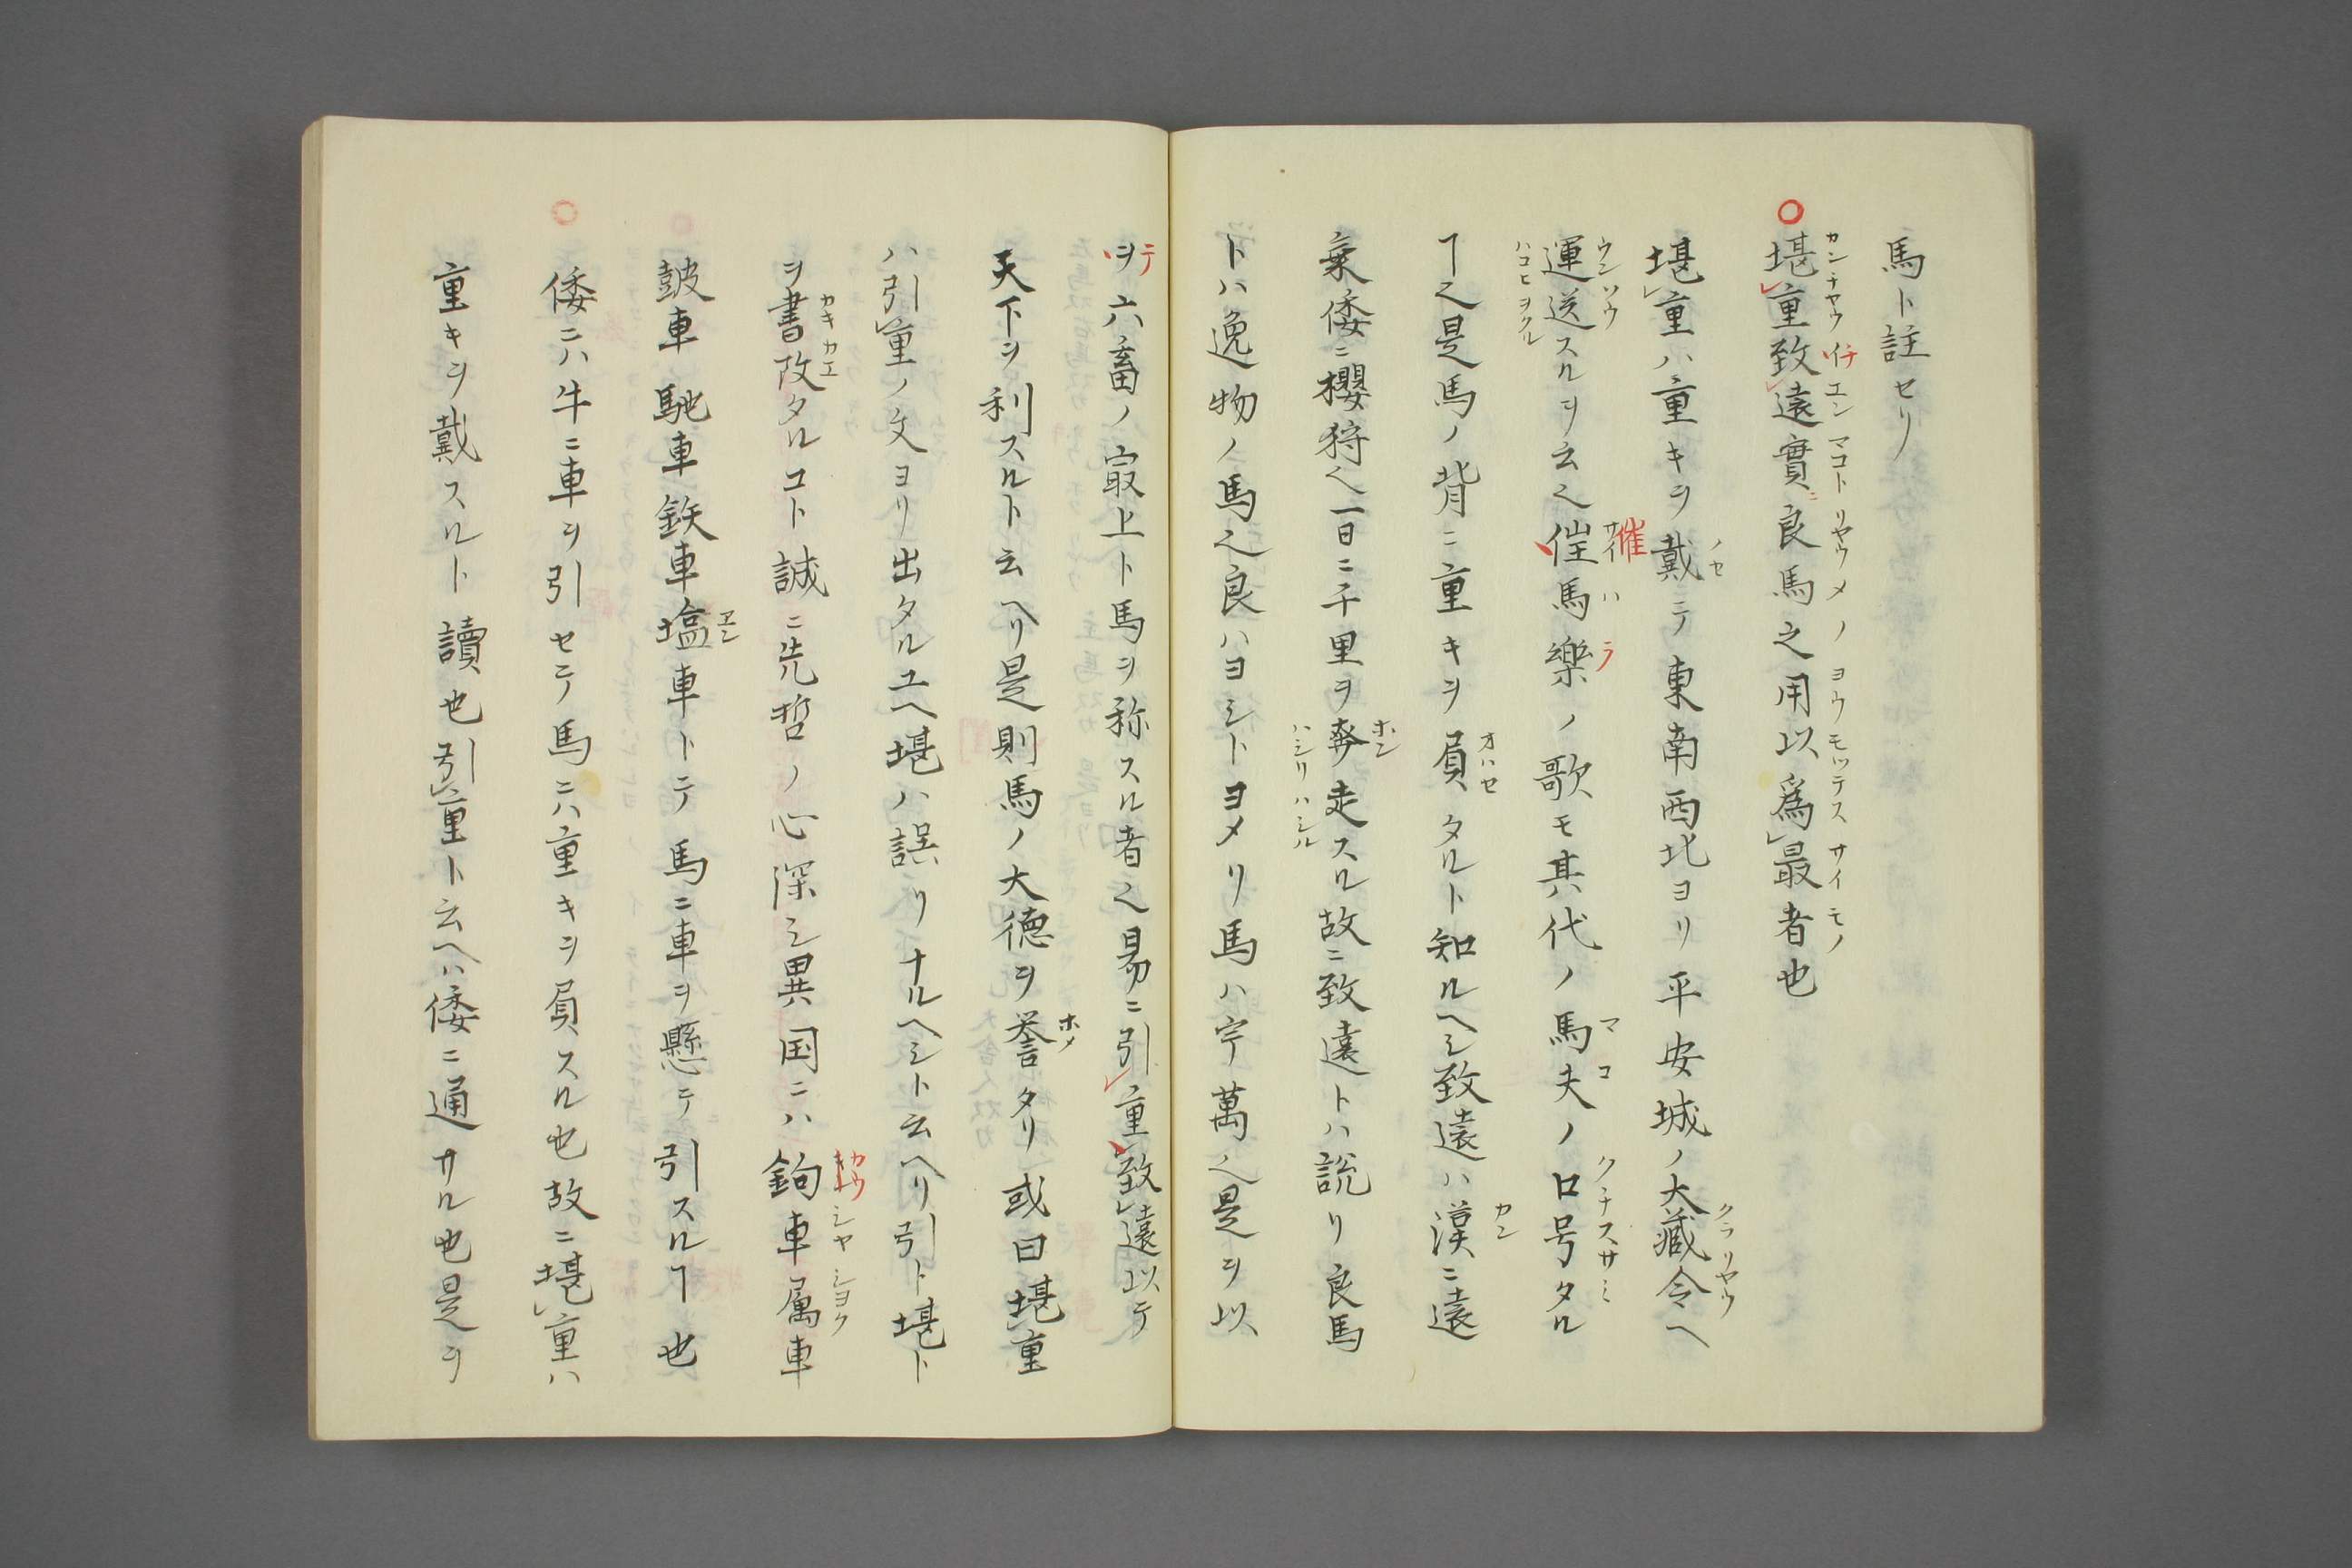 馬ト註セリ
堪重致遠實ニ良馬之用以為最者也
堪重ハ重キヲ戴テ東南西北ヨリ平安城ノ大藏令ヘ
運送スルヲ云也催馬樂ノ歌モ其代ノ馬夫ノ口号タル
ヿ也是馬ノ背ニ重キヲ負タルト知ルヘシ致遠ハ漢ニ遠
乗倭ニ櫻狩也一日ニ千里ヲ奔走スル故ニ致遠トハ説リ良馬
トハ逸物ノ馬也良ハヨシトヨメリ馬ハ宇萬也是ヲ以
ヲ六畜ノ㝡上ト馬ヲ称スル者也易ニ引重致遠以テ
天下ヲ利スルト云ヘリ是則馬ノ大德ヲ誉タリ或曰堪重
ハ引重ノ文ヨリ出タルユヘ堪ハ誤リナルヘシト云ヘリ引ト堪ト
ヲ書改タルコト誠ニ先哲ノ心深シ異国ニハ鉤車属車
皷車馳車鉄車塩車トテ馬ニ車ヲ懸テ引スルヿ也
倭ニハ牛ニ車ヲ引セテ馬ニハ重キヲ負スル也故ニ堪重ハ
重キヲ戴スルト讀也引重ト云ヘハ倭ニ通サル也是ヲ